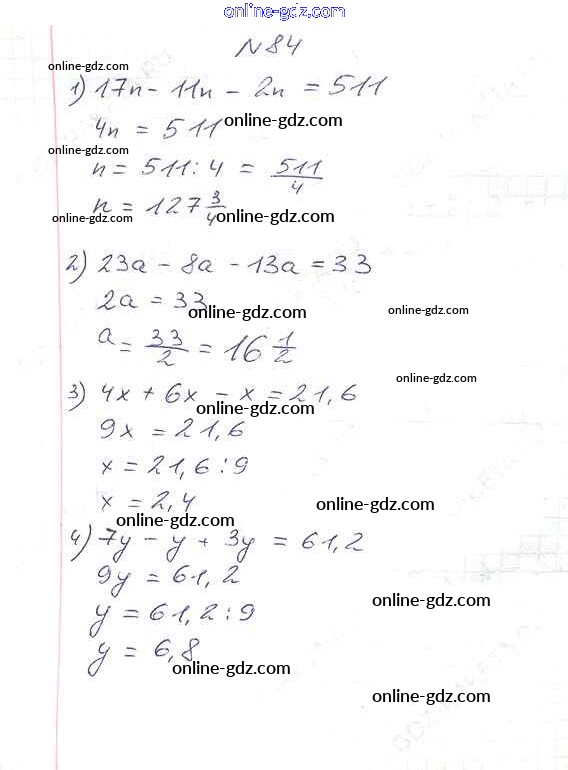 online-gdz.com
N84
online-gdz.com
1) 17n - 11n - 2n = 511
4n = 511 online-gdz.com
online-gdz.com
n = 511 : 4 = 511/4
n = 127 3/4 online-gdz.com
online-gdz.com
2) 23a - 8a - 13a = 33
2a = 33
online-gdz.com online-gdz.com
a = 33/2 = 16 1/2
online-gdz.com
3) 4x + 6x - x = 21,6
online-gdz.com
9x = 21,6
x = 21,6 : 9
x = 2,4
online-gdz.com
online-gdz.com
4) 7y - y + 3y = 61,2
9y = 61,2
online-gdz.com
y = 61,2 : 9
y = 6,8
online-gdz.com
online-gdz.com